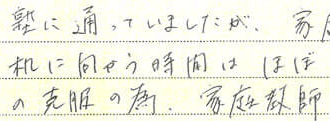 塾に通っていましたが、家
机に向かう時間はほぼ
の克服の為、家庭教師